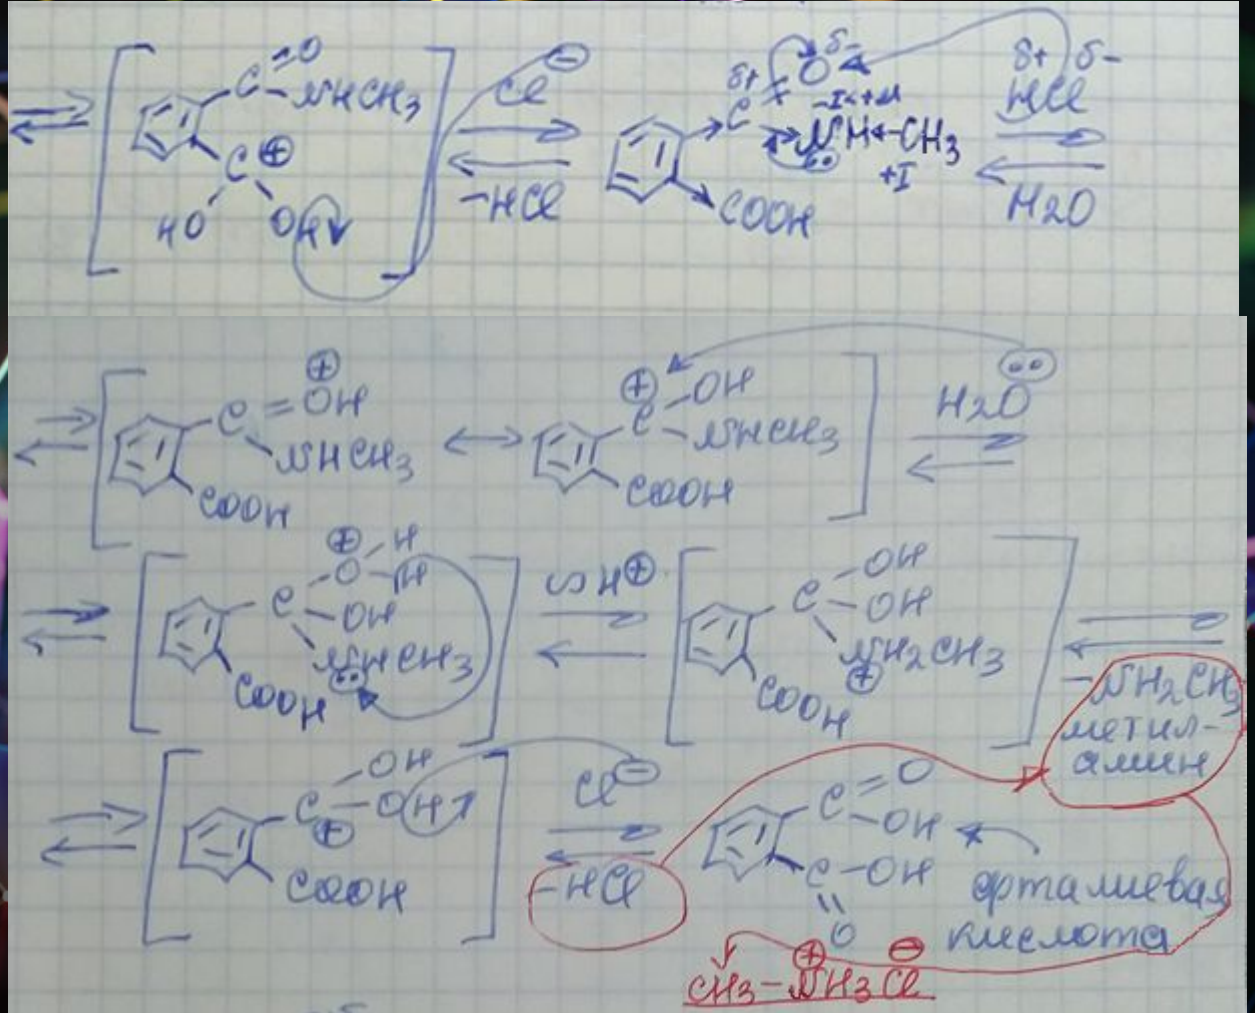 C=O
NHCH3
C ⊕
HO OH
Cl ⊖
-HCl
δ+ C O δ-
-I<+M
NH←CH3
+I
COOH
δ+ δ-
HCl
H2O
⊕
C=OH
NHCH3
COOH
⊕ OH
C
NHCH3
COOH
H2O
⊕ H
C-O-H
OH
NHCH3
COOH
∽H⊕
OH
C-OH
NH2CH3
⊕
COOH
-NH2CH3
метил-
амин
OH
C-OH
⊕
COOH
Cl ⊖
-HCl
C=O
OH
C-OH
O
фталиевая
кислота
⊕ ⊖
CH3-NH3Cl